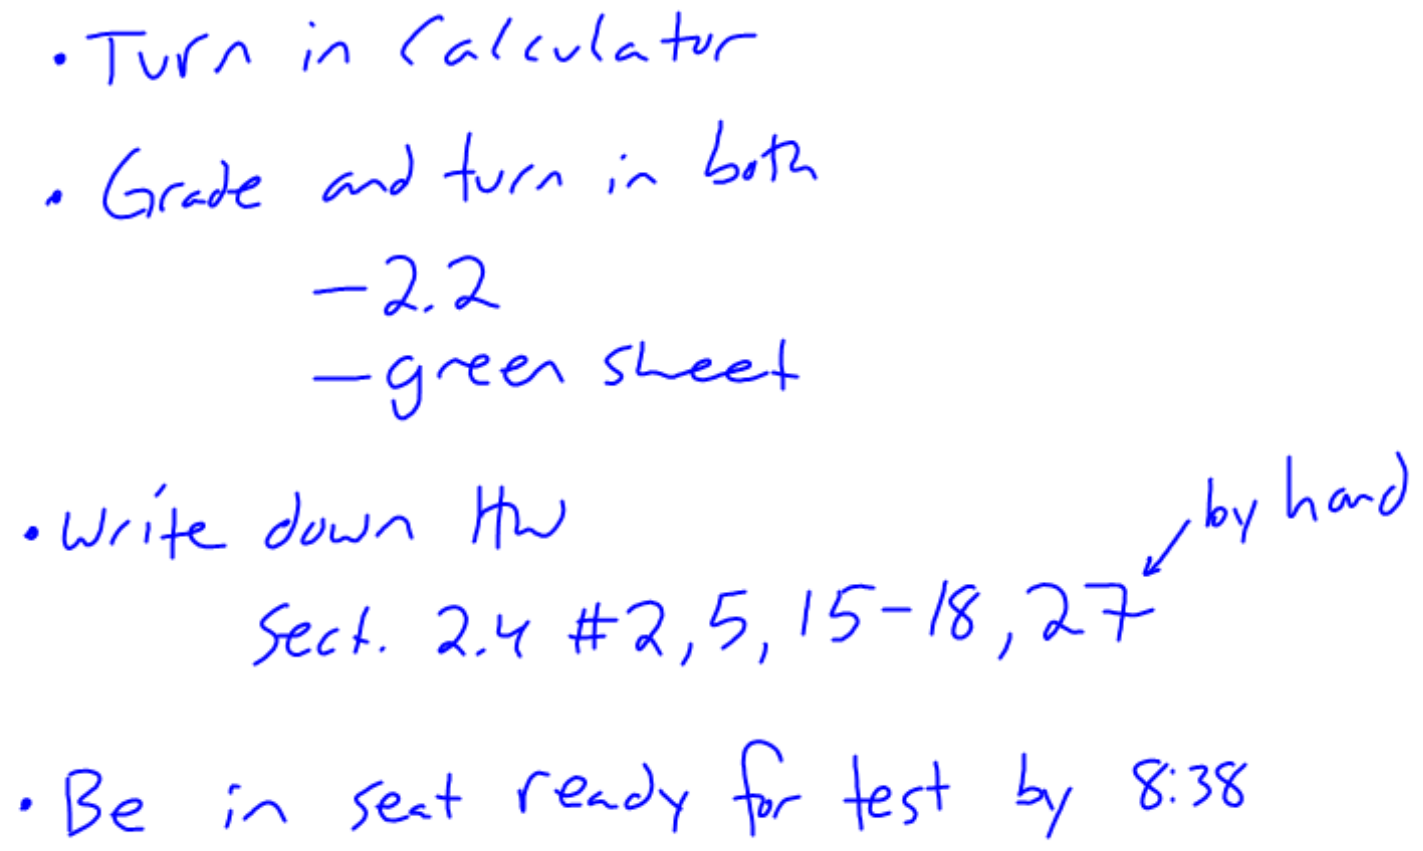 • Turn in Calculator
• Grade and turn in both
- 2.2
- green sheet
• Write down HW
by hand
Sect. 2.4 #2, 5, 15-18, 27
• Be in seat ready for test by 8:38